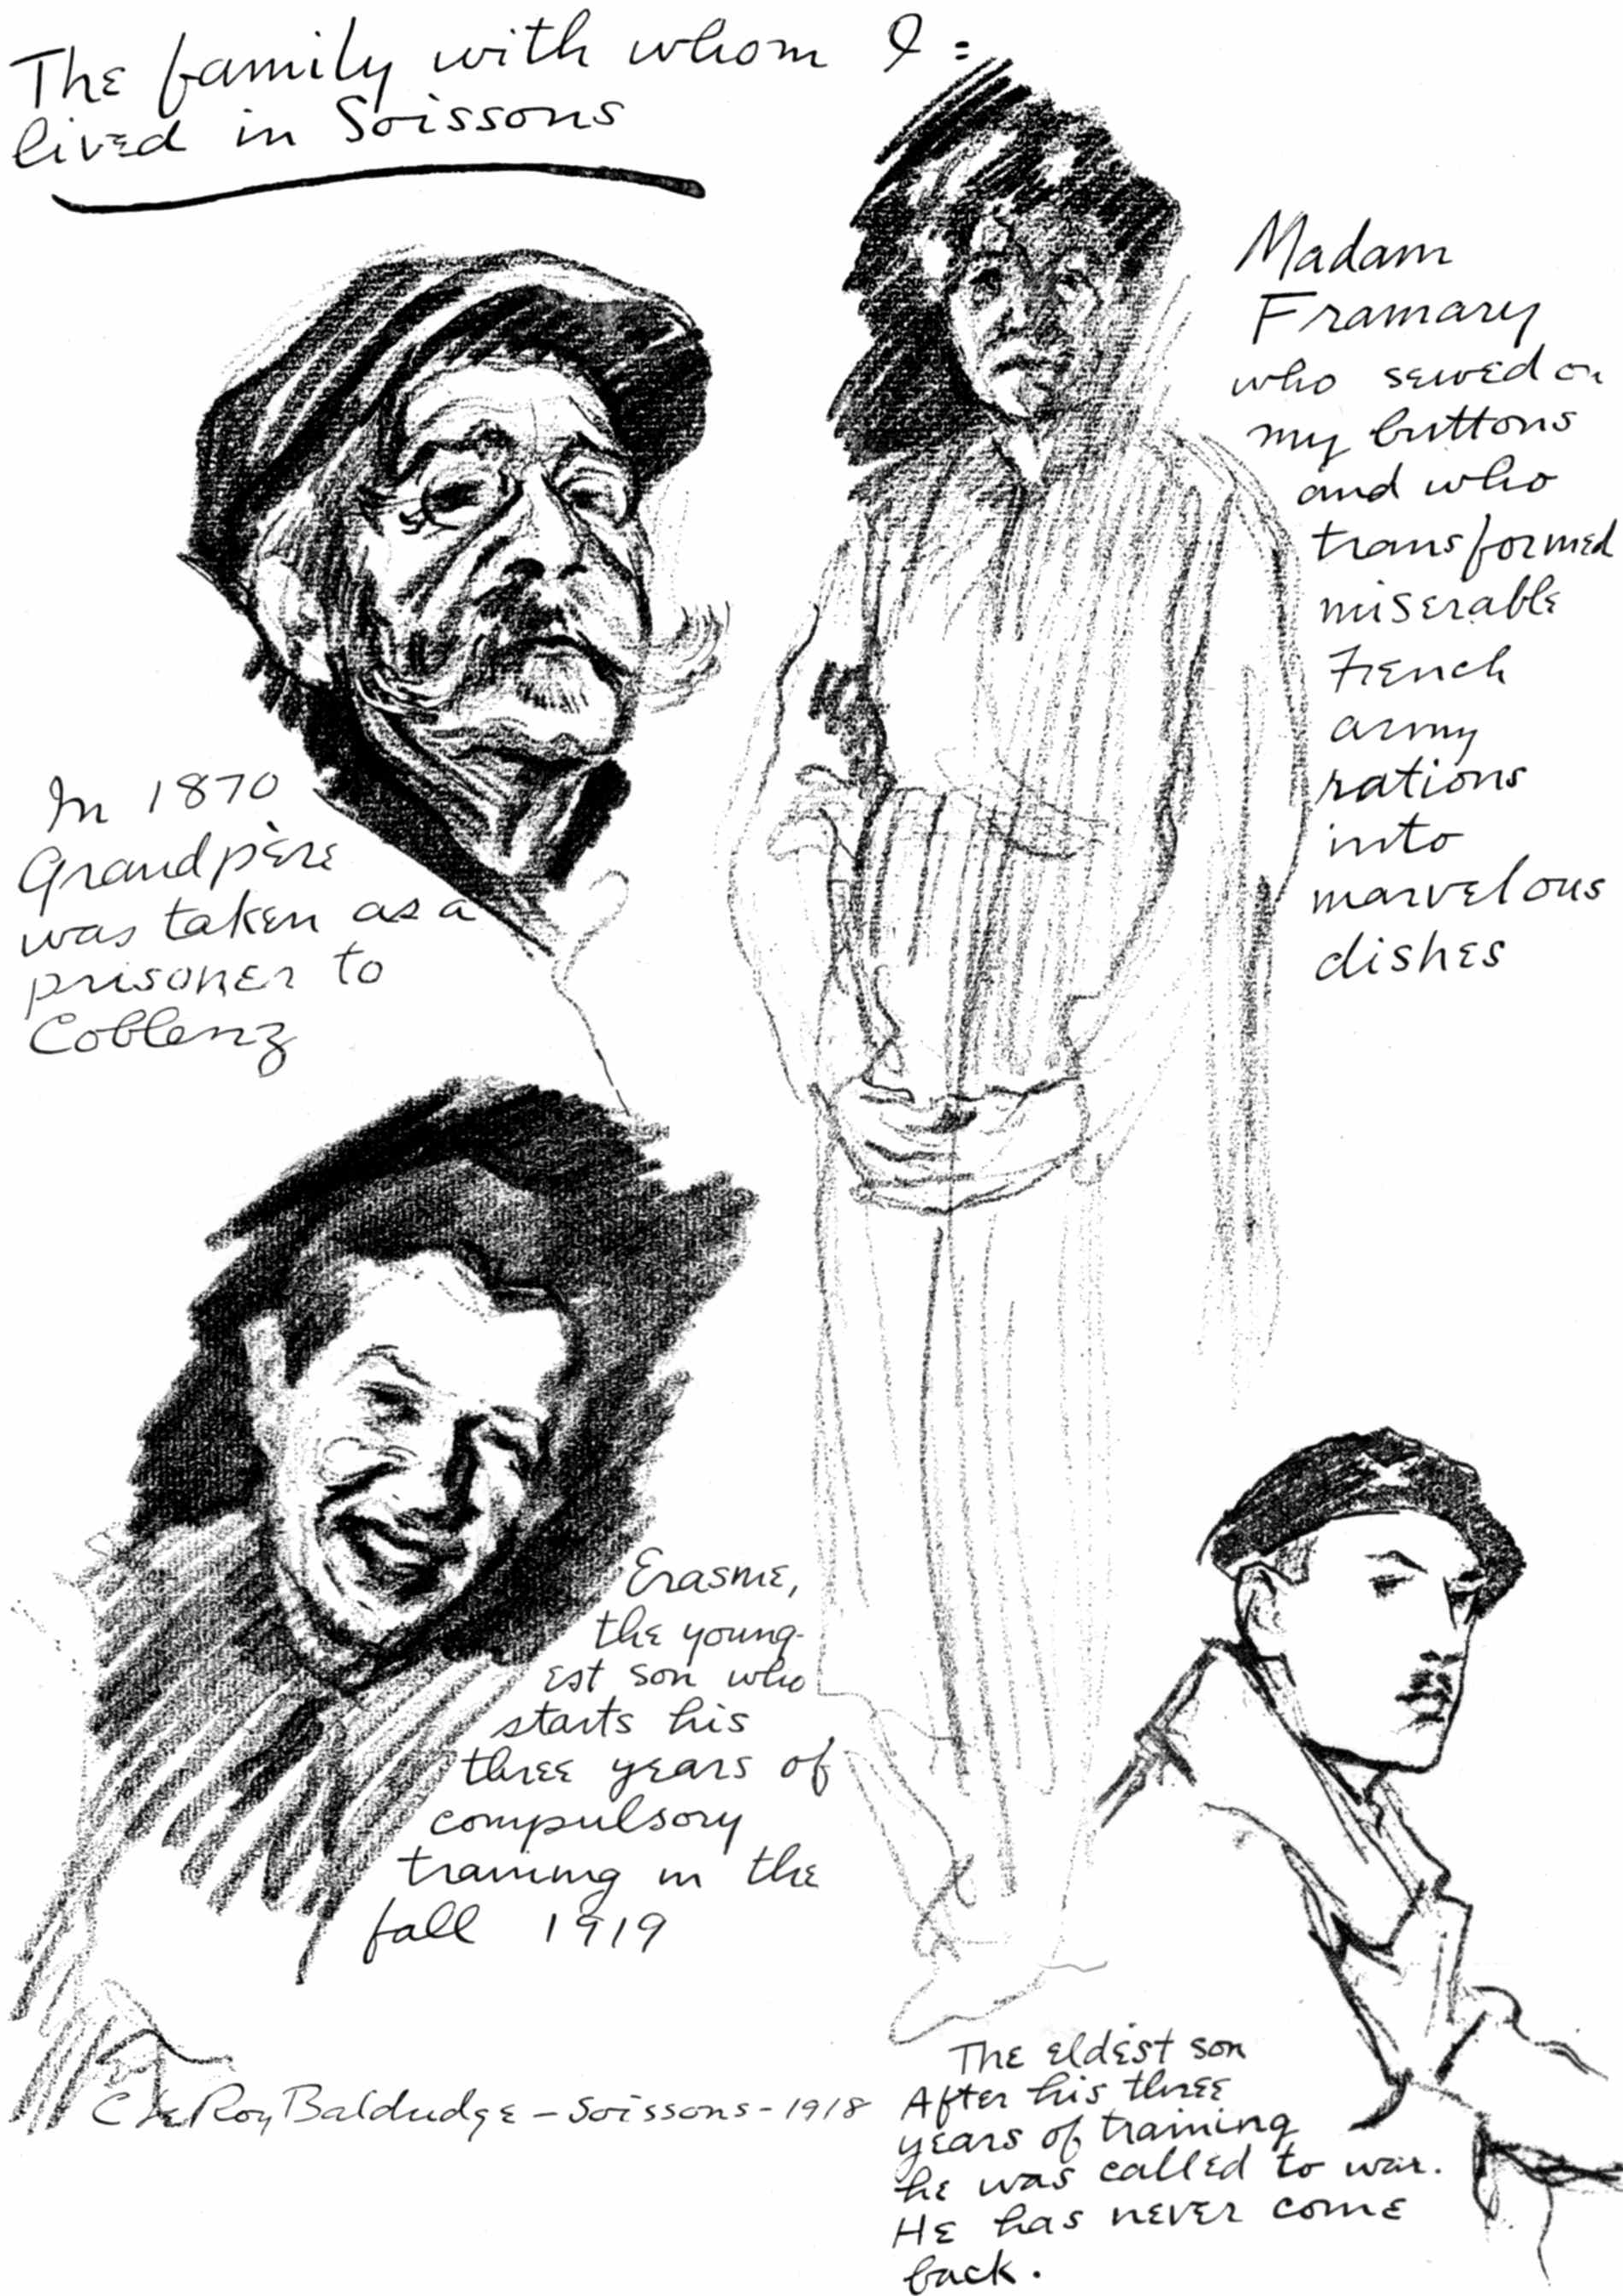 The family with whom I =
lived in Soissons
Madam
Framary
who sewed on
my buttons
and who
transformed
miserable
French
army
rations
into
marvelous
dishes
In 1870
Grandpère
was taken as a
prisoner to
Coblenz
Erasme,
the young-
est son who
starts his
three years of
compulsory
training in the
fall 1919
C LeRoy Baldridge - Soissons - 1918
The eldest son
After his three
years of training
he was called to war.
He has never come
back.